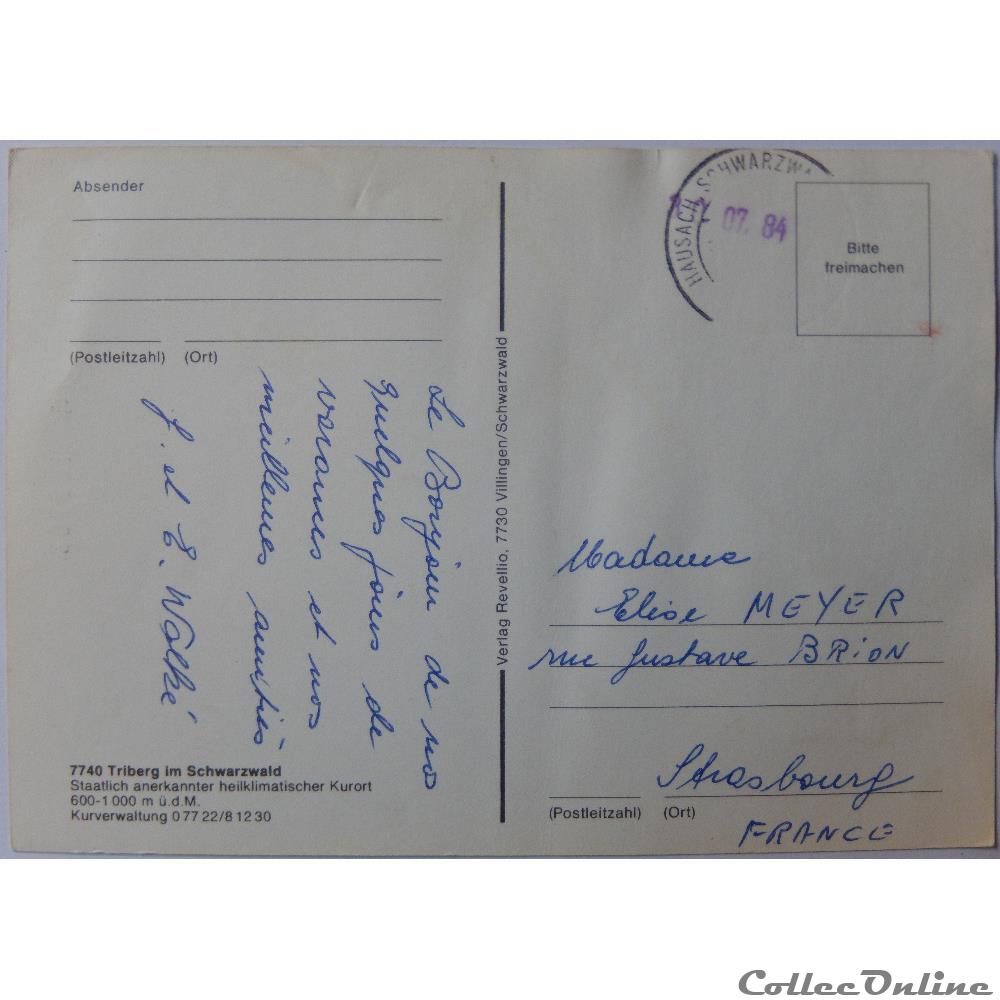 Absender
(Postleitzahl) (Ort)
Le Bonjour de nos
quelques jours de
vacances et nos
meilleures amitiés
J. et E. Wolké
7740 Triberg im Schwarzwald
Staatlich anerkannter heilklimatischer Kurort
600-1000 m ü.d.M.
Kurverwaltung 0 77 22/8 12 30
Verlag Revellio, 7730 Villingen/Schwarzwald
HAUSACH, SCHWARZWA
07. 84
Bitte
freimachen
Madame
Elise MEYER
rue Gustave BRION
Strasbourg
(Postleitzahl) (Ort)
FRANCE
CollecOnline